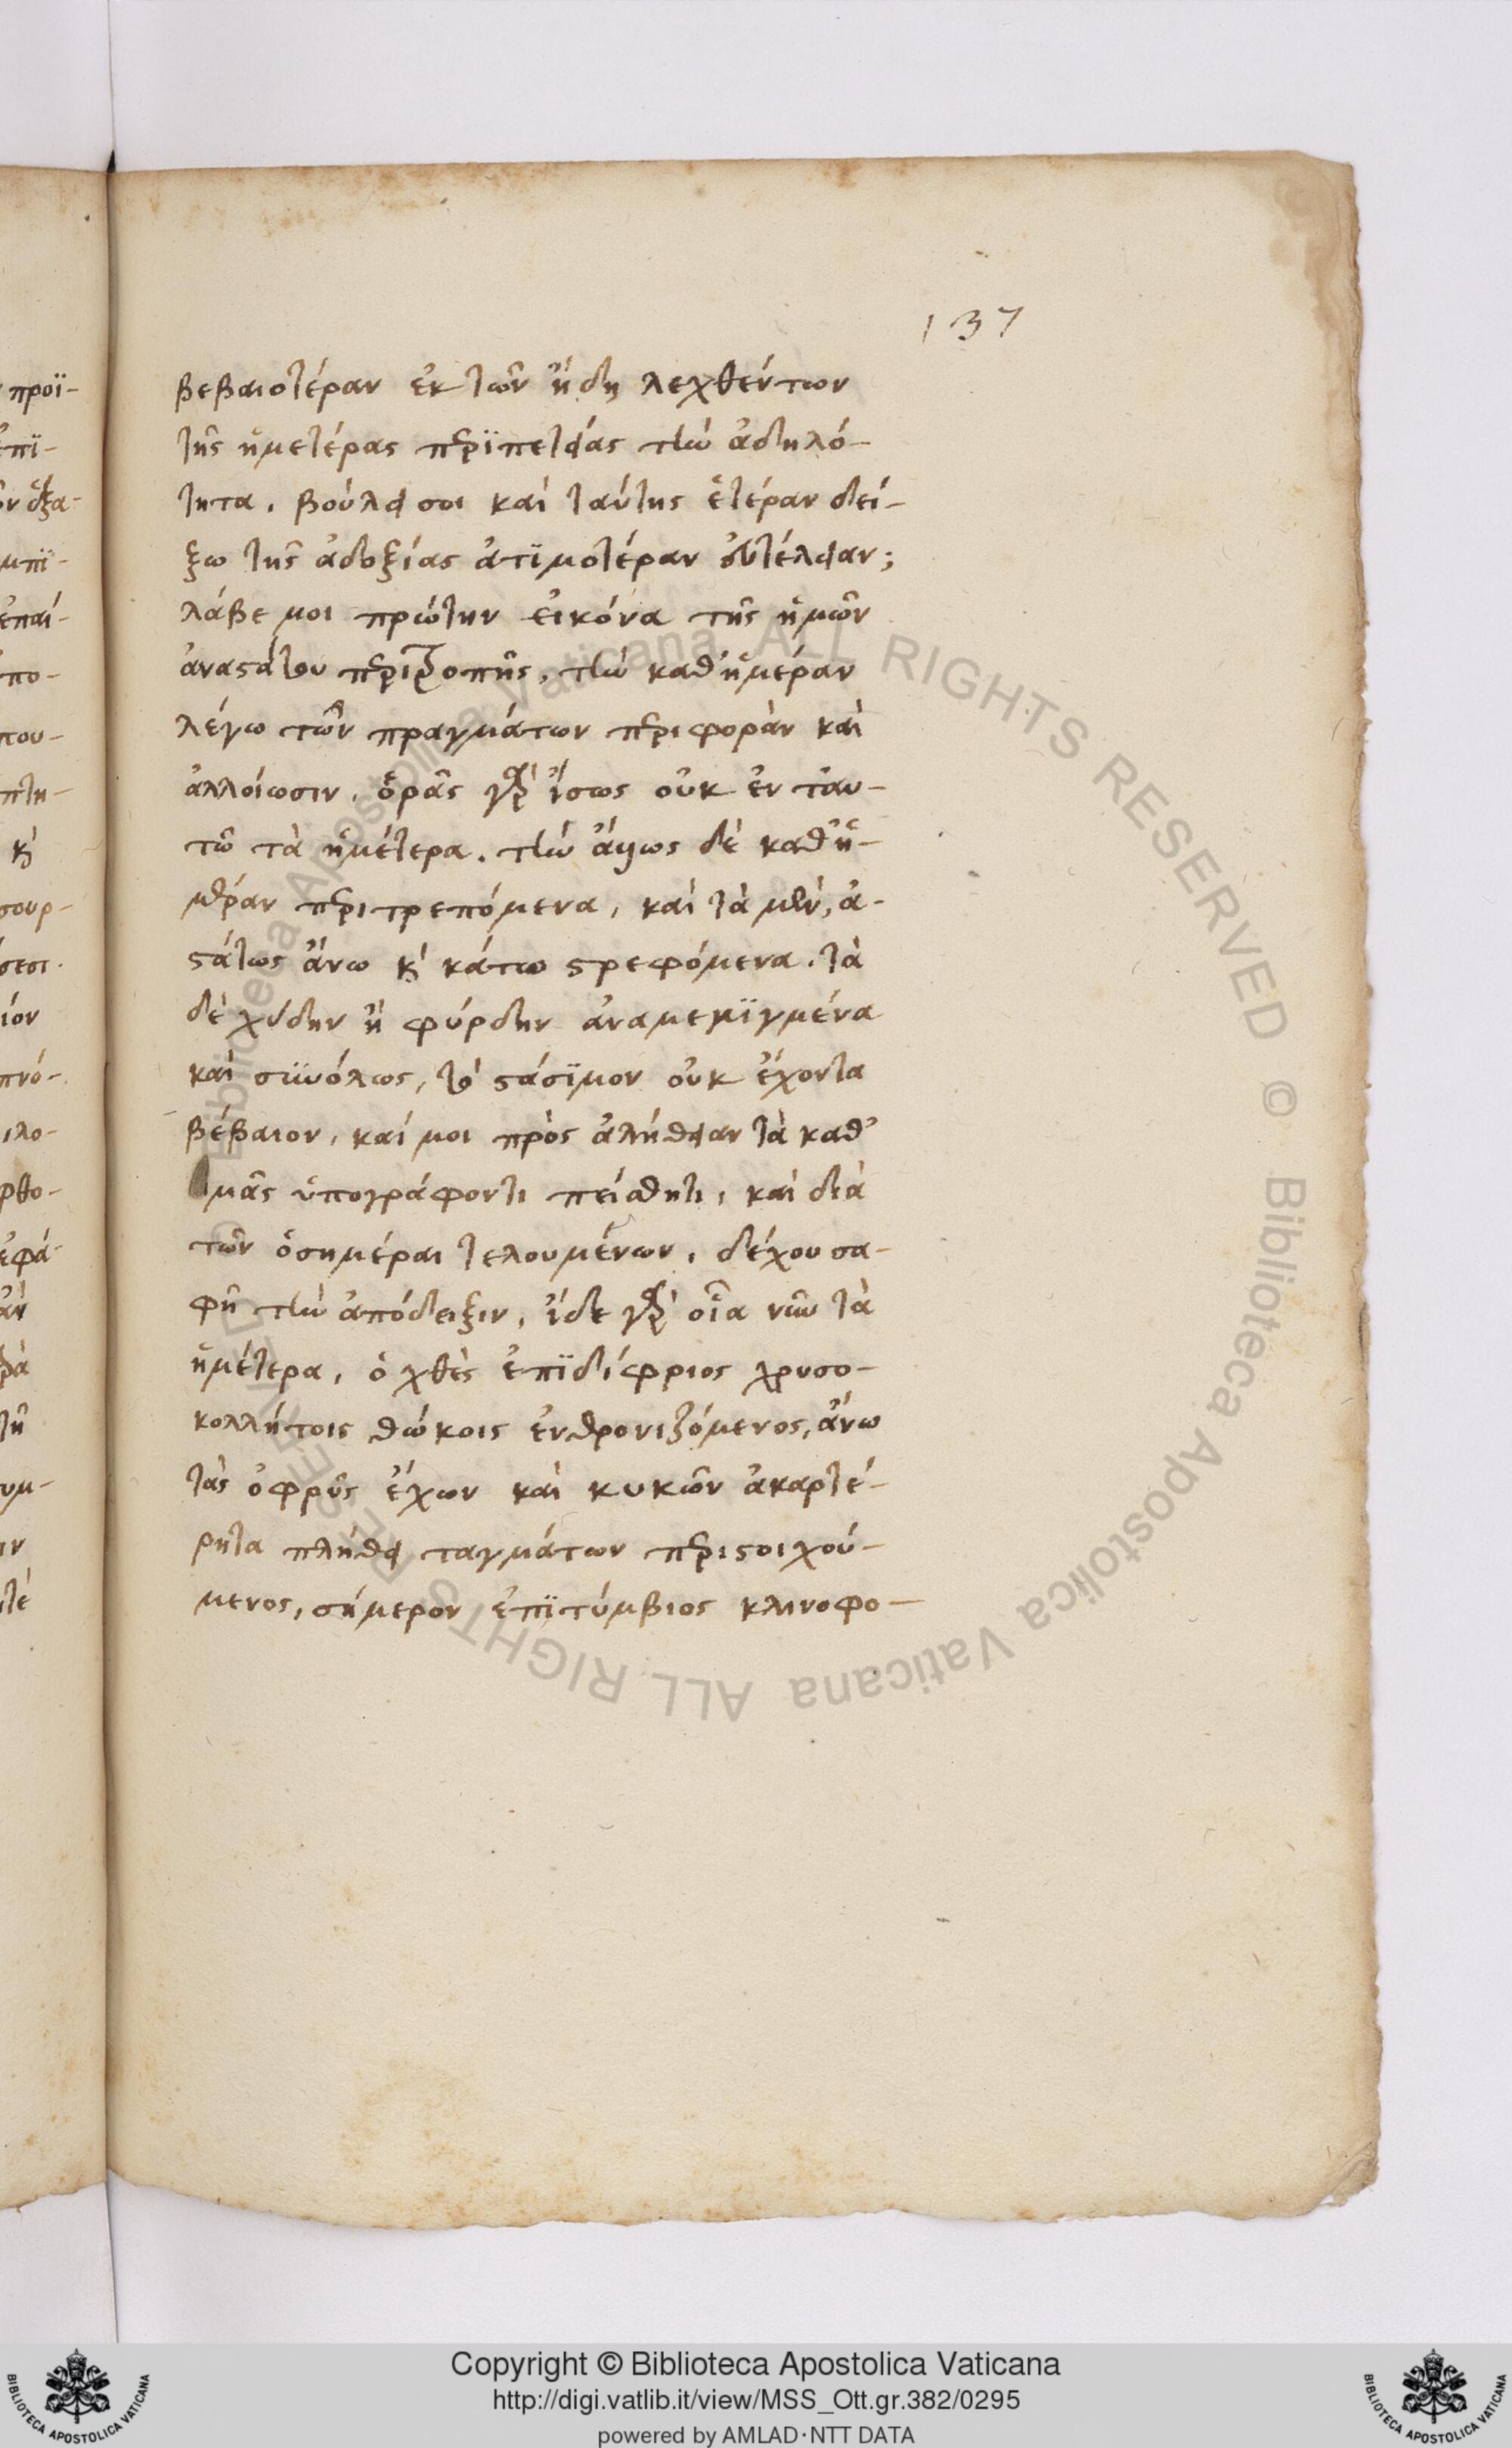 137
βεβαιοτέραν ἐκ τῶν ἤδη λεχθέντων
τῆς ἡμετέρας περϊπετείας τὴν ἀδηλό-
τητα. βούλει σοι καὶ ταύτης ἑτέραν δεί-
ξω τῆς ἀδοξίας ἀτϊμοτέραν εὐτέλειαν;
λάβε μοι πρώτην εἰκόνα τῆς ἡμῶν
ἀναστάτου περιτροπῆς, τὴν καθ' ἡμέραν
λέγω τῶν πραγμάτων περιφορὰν καὶ
ἀλλοίωσιν. ὁρᾶς γὰρ ἴσως οὐκ ἐν ταυ-
τῶ τὰ ἡμέτερα. τὴν ἄλλως δὲ καθ' ἡ-
μέραν περιτρεπόμενα, καὶ τὰ μὲν, ἀ-
στάτως ἄνω κ' κάτω στρεφόμενα. τὰ
δὲ χύδην ἢ φύρδην ἀναμεμϊγμένα
καὶ συνόλως, τὸ στάσϊμον οὐκ ἔχοντα
βέβαιον, καί μοι πρὸς ἀλήθειαν τὰ καθ'
μᾶς ὑπογράφοντι πείσθητι, καὶ διὰ
τῶν ὁσημέραι τελουμένων, δέχου σα-
φῆ τὴν ἀπόδειξιν, ἴδε γὰρ οἷα νῦν τὰ
ἡμέτερα, ὁ χθὲς ἐπϊδίφριος χρυσο-
κολλήτοις θώκοις ἐνθρονιζόμενος, ἄνω
τὰς ὀφρῦς ἔχων καὶ κυκῶν ἀκαρτέ-
ρητα πλήθει ταγμάτων περιστοιχού-
μενος, σήμερον ἐπϊτύμβιος κλινοφο-
Copyright © Biblioteca Apostolica Vaticana
http://digi.vatlib.it/view/MSS_Ott.gr.382/0295
powered by AMLAD·NTT DATA